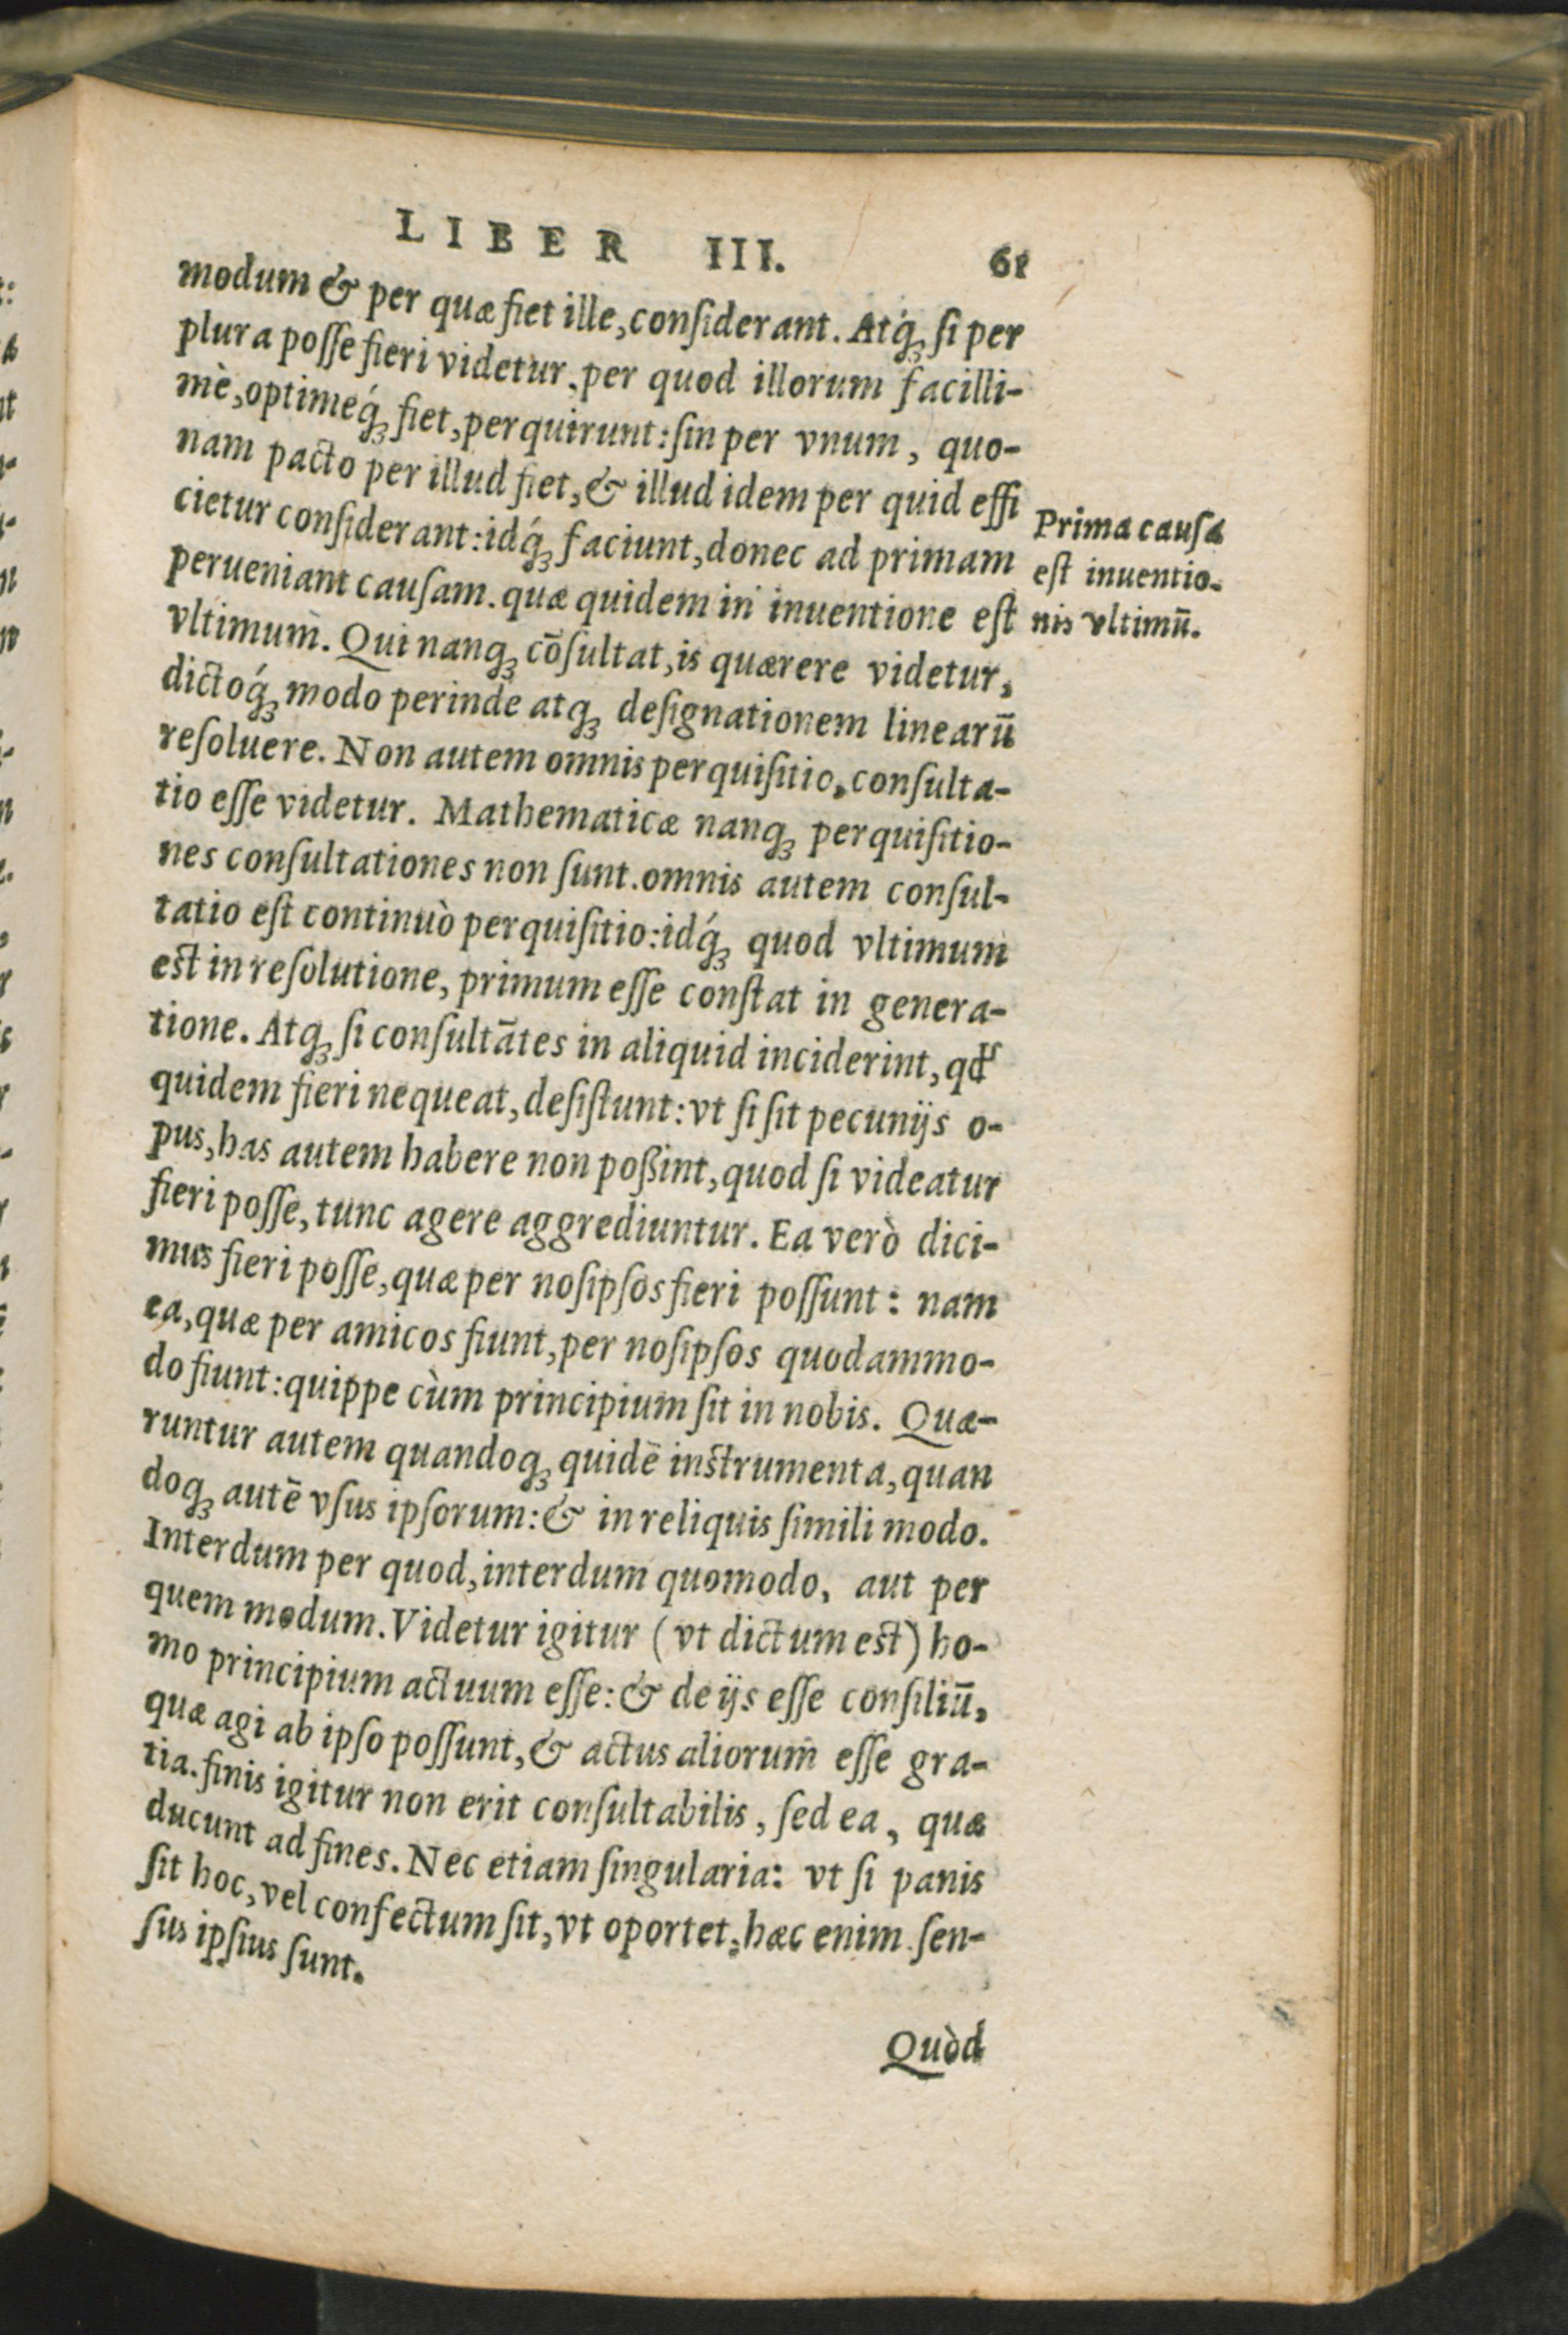 LIBER III. 61
modum & per quæ fiet ille, conſiderant. Atq́ꝫ ſi per
plura poſſe fieri videtur, per quod illorum facilli-
mè, optimeq́ꝫ fiet, perquirunt: ſin per vnum, quo-
nam pacto per illud fiet, & illud idem per quid effi
cietur conſiderant: idq́ꝫ faciunt, donec ad primam
perueniant cauſam. quæ quidem in inuentione eſt
vltimum. Qui nanqꝫ cōſultat, is quærere videtur,
dictoq́ꝫ modo perinde atqꝫ deſignationem linearū
reſoluere. Non autem omnis perquiſitio, conſulta-
tio eſſe videtur. Mathematicæ nanqꝫ perquiſitio-
nes conſultationes non ſunt. omnis autem conſul-
tatio eſt continuò perquiſitio: idq́ꝫ quod vltimum
eſt in reſolutione, primum eſſe conſtat in genera-
tione. Atqꝫ ſi conſultātes in aliquid inciderint, qđ
quidem fieri nequeat, deſiſtunt: vt ſi ſit pecunijs o-
pus, has autem habere non poßint, quod ſi videatur
fieri poſſe, tunc agere aggrediuntur. Ea verò dici-
mus fieri poſſe, quæ per noſipſos fieri poſſunt: nam
ea, quæ per amicos fiunt, per noſipſos quodammo-
do fiunt: quippe cùm principium ſit in nobis. Quæ-
runtur autem quandoqꝫ quidē inſtrumenta, quan
doqꝫ autē vſus ipſorum: & in reliquis ſimili modo.
Interdum per quod, interdum quomodo, aut per
quem modum. Videtur igitur (vt dictum eſt) ho-
mo principium actuum eſſe: & de ijs eſſe conſiliū,
quæ agi ab ipſo poſſunt, & actus aliorum eſſe gra-
tia. finis igitur non erit conſultabilis, ſed ea, quæ
ducunt ad fines. Nec etiam ſingularia: vt ſi panis
ſit hoc, vel confectum ſit, vt oportet, hæc enim ſen-
ſus ipſius ſunt.
Quòd
Prima cauſa
eſt inuentio-
nis vltimū.